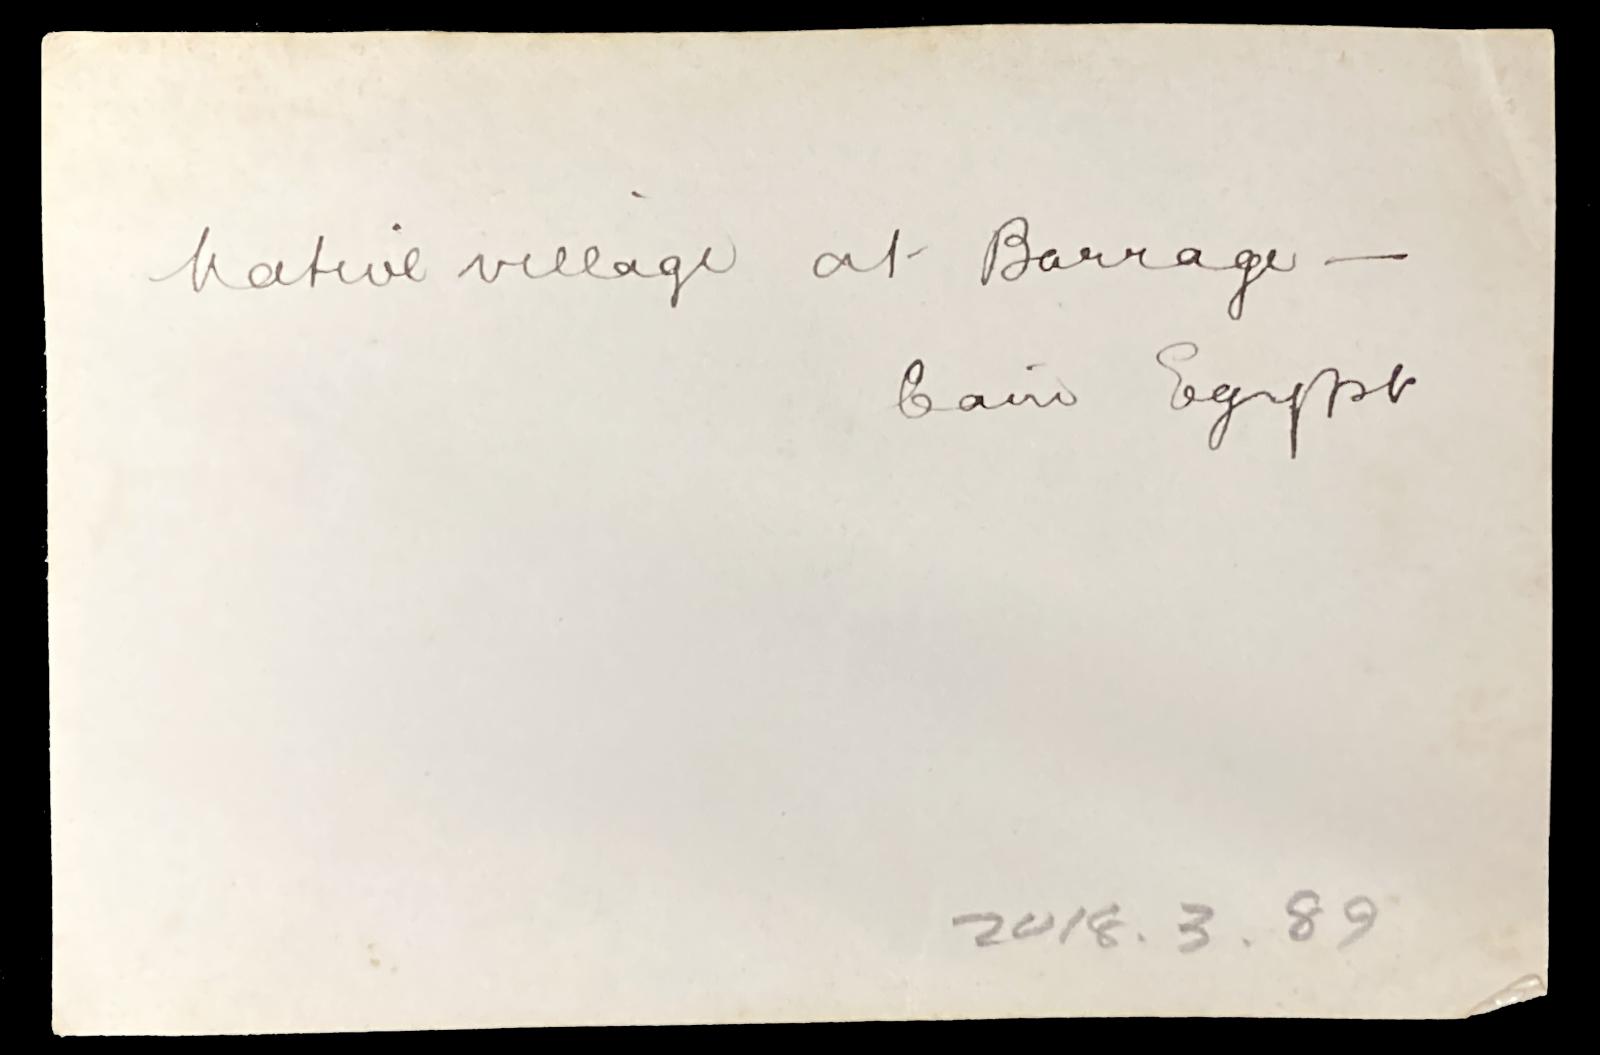 Native village at Barrage —
Cairo Egypt
2018.3.89